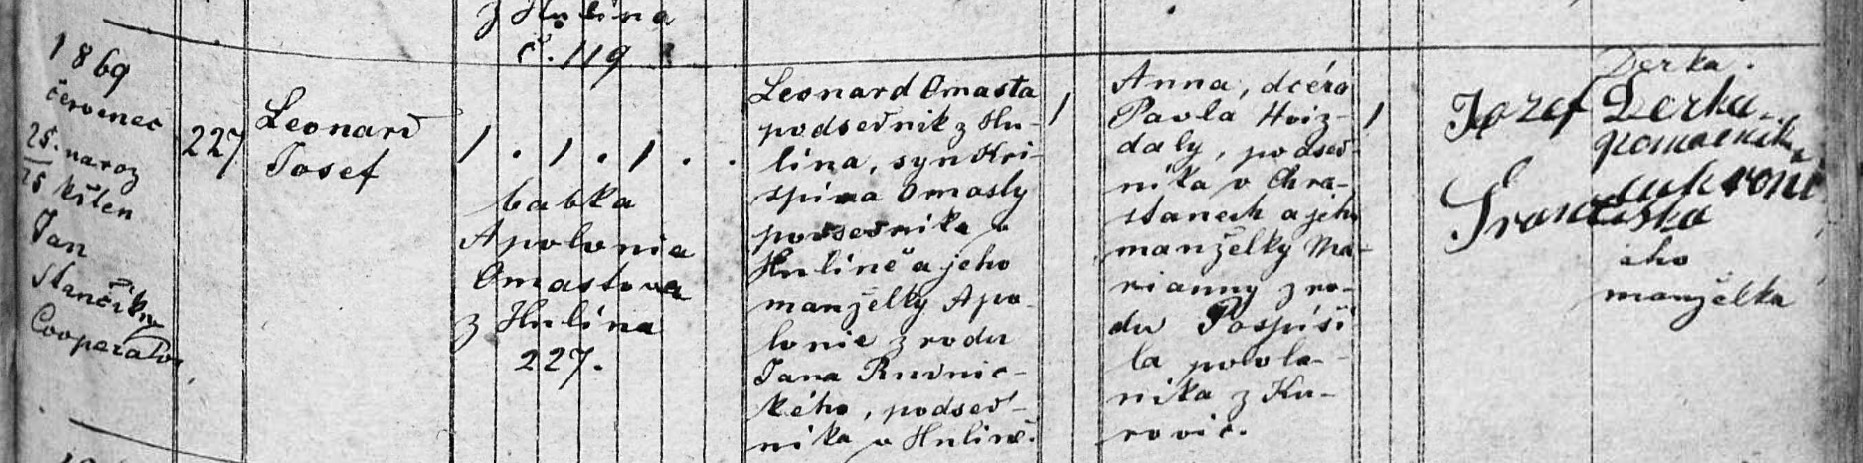 z Hulína
č. 119
1869
červenec
25. naroz
25 křten
Jan
Stančík
Cooperator
227
Leonard
Josef
1 . 1 . 1 . .
babka
Apolonia
Omastova
z Hulína
227.
Leonard Omasta
podsedník z Hu-
lína, syn Kri-
spina Omasty
podsedníka v
Hulíně a jeho
manželky Apo-
lonie z rodu
Jana Rudnic-
kého, podsed-
níka v Hulíně.
1
Anna, dcéra
Pavla Hvíz-
daly, podsed-
níka v Chra-
stanech a jeho
manželky Ma-
rianny z ro-
du Pospíši
la povola-
níka z Ku-
rovic.
1
Derka.
Jozef Derka
Františka
jeho
manželka